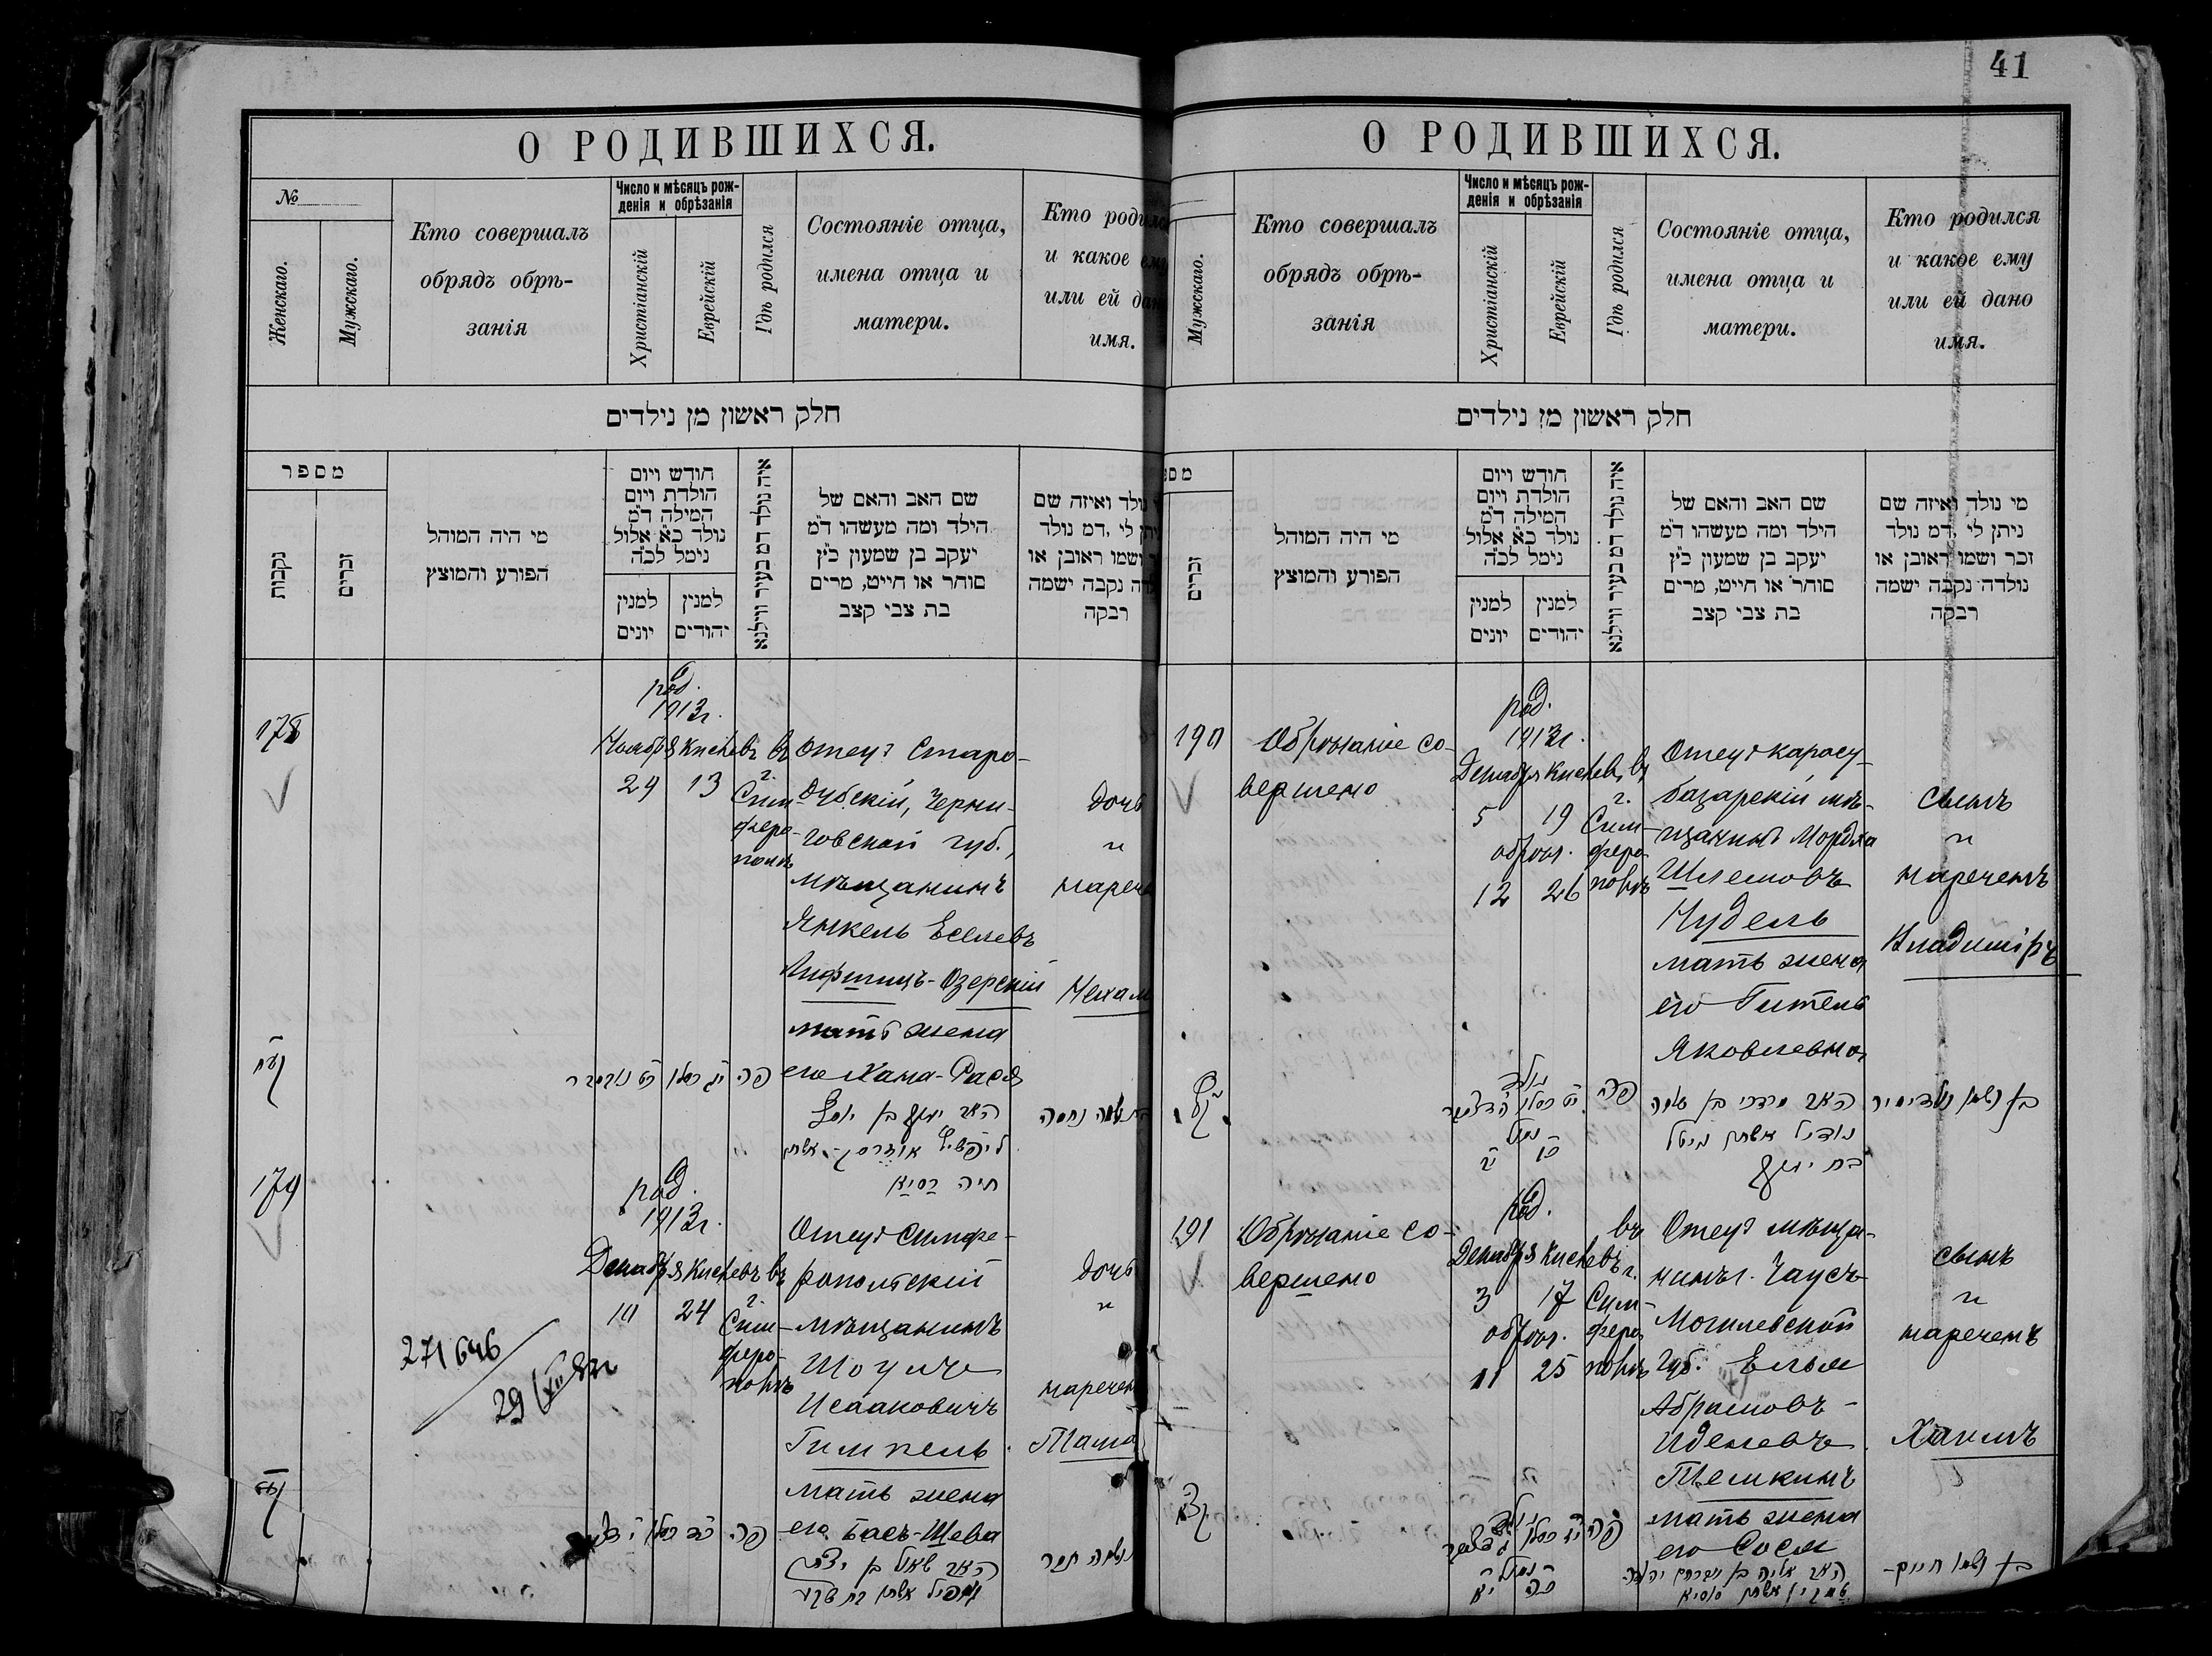 41
О РОДИВШИХСЯ.
№
Женскаго.
Мужскаго.
Кто совершалъ
обрядъ обрѣ-
занія
Число и мѣсяцъ рож-
денія и обрѣзанія
Христіанскій
Еврейскій
Гдѣ родился
Состояніе отца,
имена отца и
матери.
Кто родился
и какое ему
или ей дано
имя.
חלק ראשון מן נילדים
מספר
נקבות
זכרים
מי היה המוהל
הפורע והמוצץ
חודש ויום
הולדת ויום
המילה ד״מ
נולד כ״א אלול
נימל לכ״ה
למנין
יונים
למנין
יהודים
איה נולד דמ בעיר ווילנא
שם האב והאם של
הילד ומה מעשהו ד״מ
יעקב בן שמעון כ״ץ
סוחר או חייט, מרים
בת צבי קצב
נולד ואיזה שם
ניתן לי, דמ נולד
ושמו ראובן או
נקבה ישמה
רבקה
178
род.
1913 г.
Ноября Кислевъ въ
29 13 г.
Сим
феро-
полѣ
Отецъ Старо-
дубскій, Черни-
говской губ.,
мѣщанинъ
Янкель Еселевъ
Лифшицъ-Озерскій
мать жена
его Хана-Рася
дочь
и
нареч
Нехам
פה
האב יעקב בן יוסף
חיה רסיא
נחמה
179
род.
1913 г.
Декабря Кислевъ въ
10 24 г.
Сим-
феро-
полѣ
Отецъ Симфе-
ропольскій
мѣщанинъ
Шоуль
Исааковичъ
Гимпель
мать жена
его Басъ-Шева
дочь
и
наречен
Тама
271646
29
פה
האב שאול בן יצחק
גימפיל אשתו בת שבע
תמר
О РОДИВШИХСЯ.
Мужскаго.
Кто совершалъ
обрядъ обрѣ-
занія
Число и мѣсяцъ рож-
денія и обрѣзанія
Христіанскій
Еврейскій
Гдѣ родился
Состояніе отца,
имена отца и
матери.
Кто родился
и какое ему
или ей дано
имя.
חלק ראשון מן נילדים
זכרים
מי היה המוהל
הפורע והמוצץ
חודש ויום
הולדת ויום
המילה ד״מ
נולד כ״א אלול
נימל לכ״ה
למנין
יונים
למנין
יהודים
איה נולד דמ בעיר ווילנא
שם האב והאם של
הילד ומה מעשהו ד״מ
יעקב בן שמעון כ״ץ
סוחר או חייט, מרים
בת צבי קצב
מי נולד ואיזה שם
ניתן לי, דמ נולד
זכר ושמו ראובן או
נולדה נקבה ישמה
רבקה
190
Обрѣзаніе со-
вершено
род.
1913 г.
Декабря Кислев, въ
5 19 г.
Сим-
обрѣз. феро
12 26 полѣ
Отецъ карасу-
базарскій мѣ-
щанинъ Мордха
Шлемовъ
Нудель
мать жена
его Гитель
Яковлевна
сынъ
и
нареченъ
Владиміръ
נולד
פה
האב מרדכי בן שלמה
נודיל אשתו גיטל
בת יעקב
בן ושמו וולאדימיר
191
Обрѣзаніе со-
вершено
род.
Декабря Кислевъ въ г.
3 17 Сим-
обрѣз. феро
11 25 полѣ
Отецъ мѣща-
нинъ г. Чаусъ
Могилевской
губ. Елья
Абрамовъ-
Иделевъ
Темкинъ
мать жена
его Сося
сынъ
и
нареченъ
Хаимъ
נולד
פה
האב אליה בן אברהם יהודה
טמקין אשתו סוסיא
בן ושמו חיים-